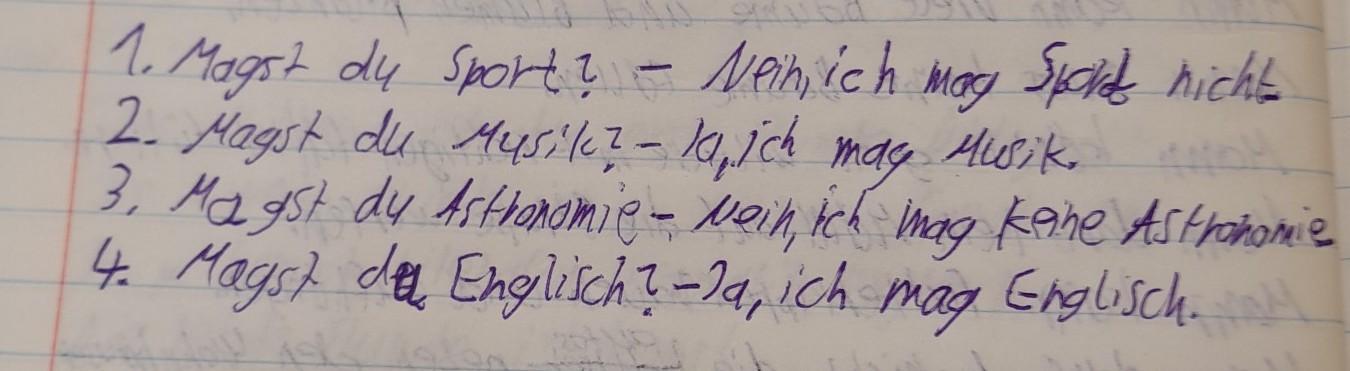 1. Magst du Sport? - Nein, ich mag Sport nicht
2. Magst du Musik? - Ja, ich mag Musik.
3. Magst du Astronomie - Nein, ich mag keine Astronomie
4. Magst du Englisch? - Ja, ich mag Englisch.